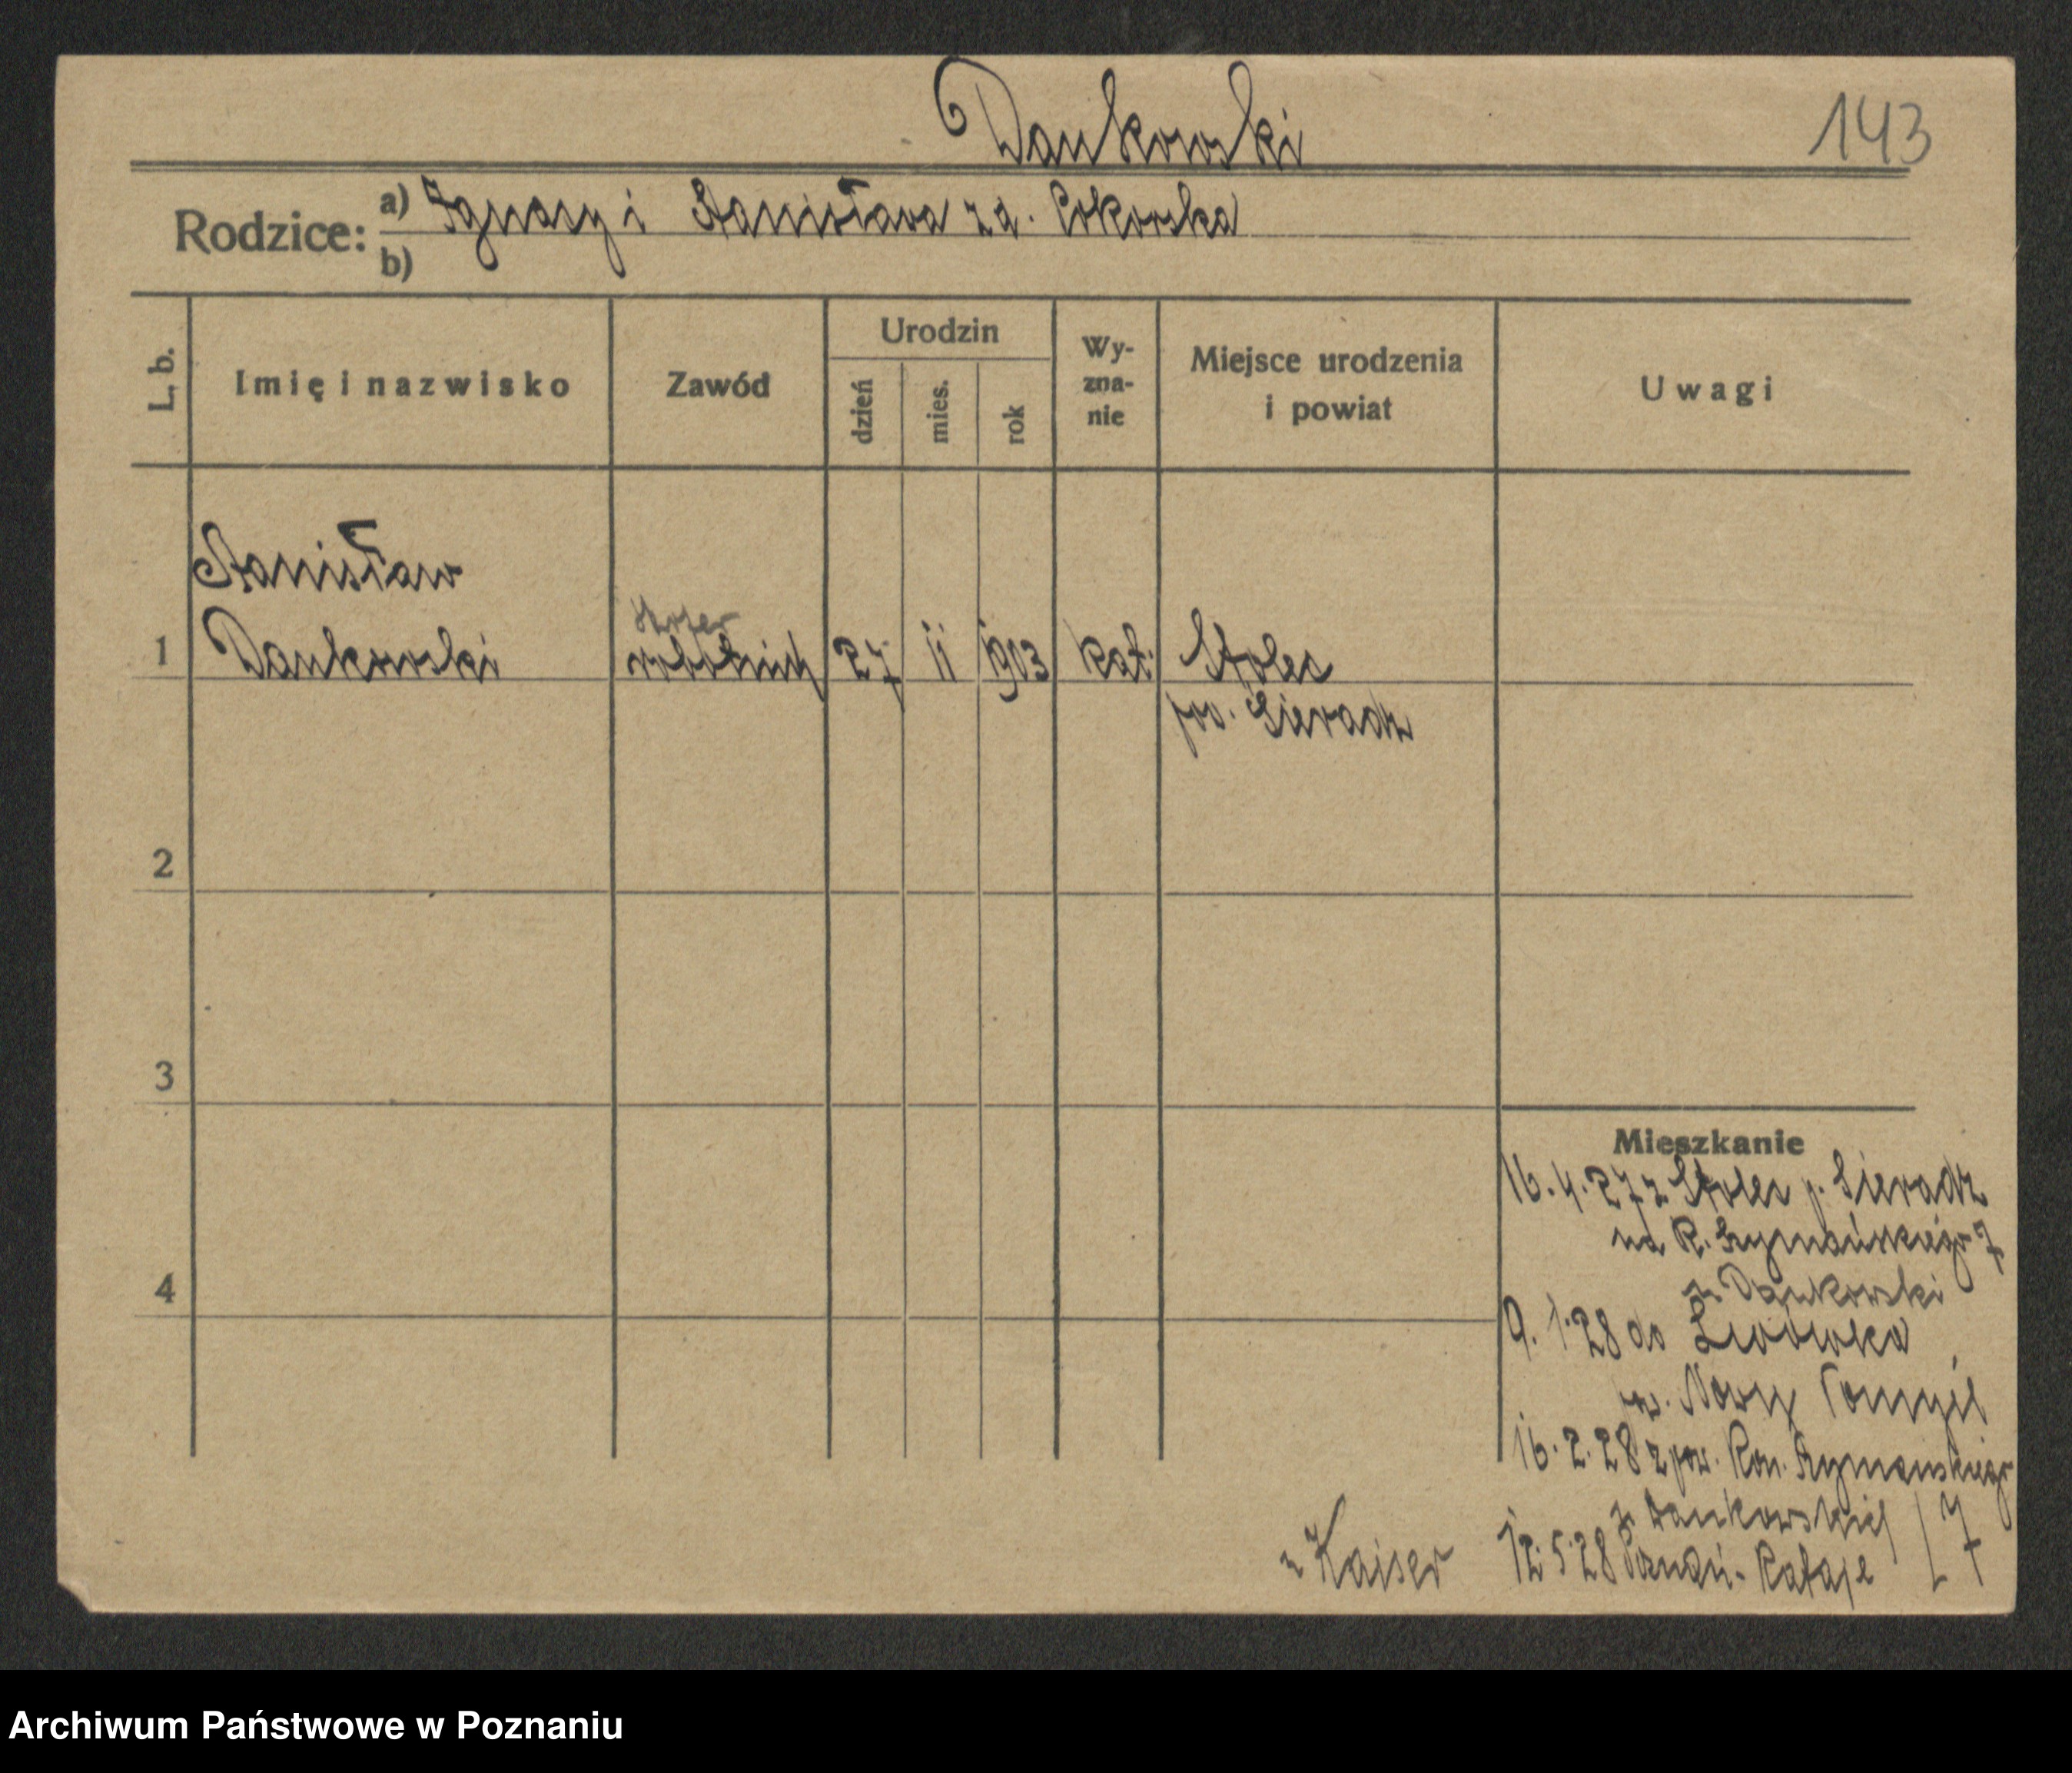 Dankowski
143
Rodzice: a) Ignacy i Stanisława za. Pokorska
b)
L. b.
Imię i nazwisko
Zawód
Urodzin
dzień
mies.
rok
Wy-
zna-
nie
Miejsce urodzenia
i powiat
Uwagi
Stanisław
1 Dankowski robotnik 27 11 1903 kat. Stolec
pow. Sieradz
2
3
4
Mieszkanie
16.4.27 z Stolec p. Sieradz
na R. Szymańskiego 7
z. Dankowski
9.1.28 do Lwówka
pow. Nowy Tomyśl
16.2.28 z pow. Rom. Szymańskiego
z. Dankowskiej 7
12.5.28 Poznań-Rataje
z Kaiser
Archiwum Państwowe w Poznaniu